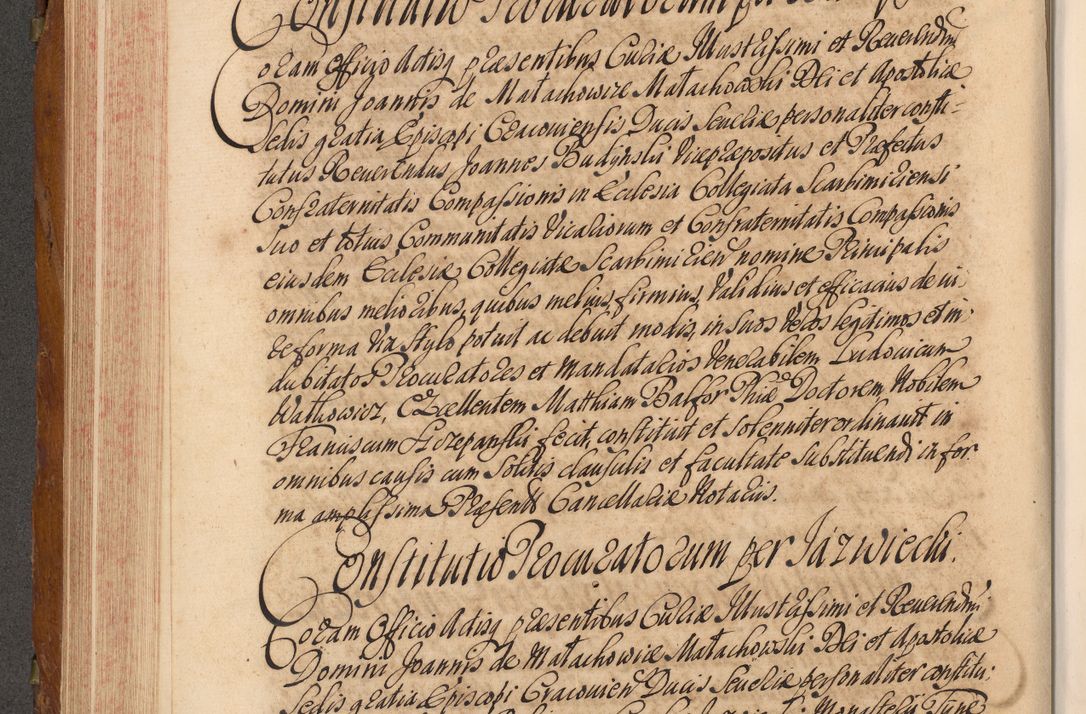 Constitutio Procuratorum per
Coram Officio Actisq præsentibus Curiæ Illustrissimi et Reuerendmi
Domini Joannis de Małachowice Małachowski Dei et Apostolicæ
Sedis gratia Episcopi Cracouiensis Ducis Seueriæ personaliter consti-
tutus Reuerendus Joannes Budzynski Vicepræpositus et Præfectus
Confraternitatis Compassionis in Ecclesia Collegiata Scarbimiriensi
Suo et totius Communitatis Vicariorum et Confraternitatis Compassionis
eiusdem Ecclesiæ Collegiatæ Scarbimirien nomine Principalis
omnibus melioribus, quibus melius, firmius, validius et efficacius de iu-
re forma via Stylo potuit ac debuit modis, in Suos Veros legitimos et in-
dubitatos Procuratores et Mandatarios Venerabilem Ludouicum
Wathowicz, Excellentem Matthiam Balfor Phiæ Doctorem, Nobilem
Franciscum Szczepanski fecit, constituit et Solenniter ordinauit in
omnibus causis cum Solitis clausulis et facultate Substituendi in for-
ma amplissima Præsentib Cancellariæ Notariis.
Constitutio Procuratorum per Jazwiecki.
Coram Officio Actisq præsentibus Curiæ Illustrissimi et Reuerendmi
Domini Joannis de Małachowice Małachowski Dei et Apostolicæ
Sedis gratia Episcopi Cracouien Ducis Seueriæ personaliter constitu-